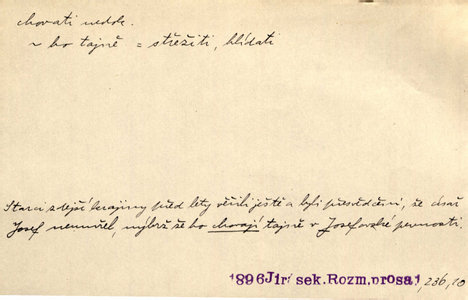 chovati nedok.
~ ho tajně = střežiti, hlídati
Starci zdejší krajiny před lety věřili ještě a byli přesvědčeni, že císař
Josef neumřel, nýbrž že ho chovají tajně v Josefovské pevnosti.
1896 Jirásek. Rozm. prosa 1, 236, 10